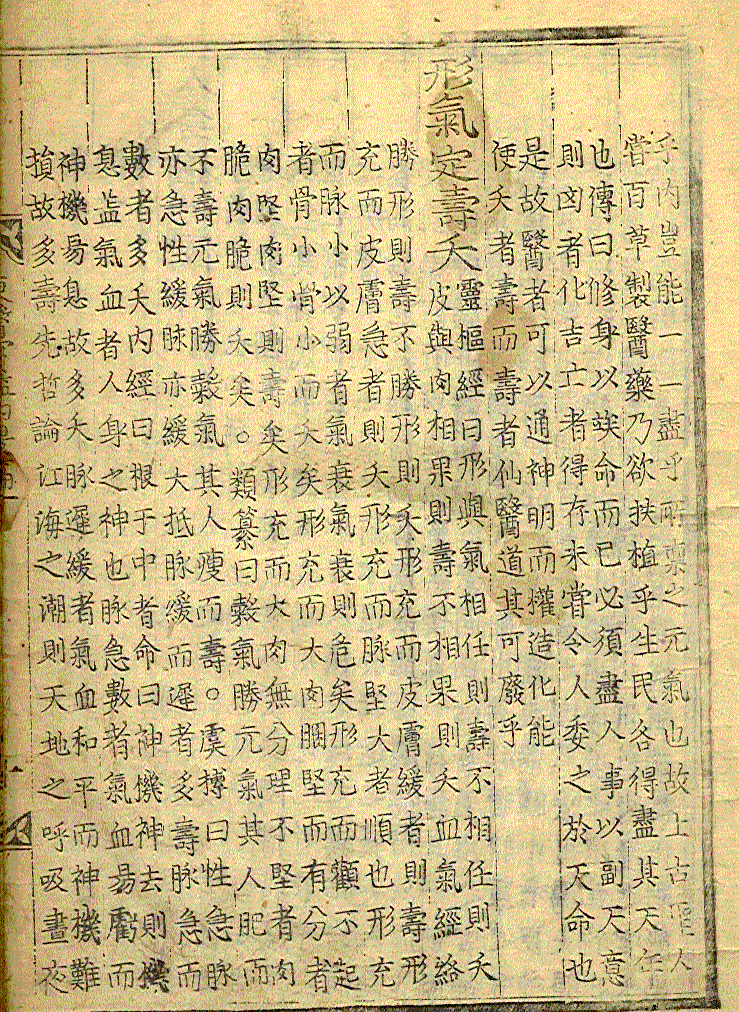 乎內豈能一一盡乎所稟之元氣也故上古聖人
嘗百草製醫藥乃欲扶植乎生民各得盡其天年
也傳曰修身以俟命而已必須盡人事以副天意
則凶者化吉亡者得存未嘗令人委之於天命也
是故醫者可以通神明而權造化能
使夭者壽而壽者仙醫道其可廢乎
形氣定壽夭
靈樞經曰形與氣相任則壽不相任則夭
皮與肉相果則壽不相果則夭血氣經絡
勝形則壽不勝形則夭形充而皮膚緩者則壽形
充而皮膚急者則夭形充而脉堅大者順也形充
而脉小以弱者氣衰氣衰則危矣形充而顴不起
者骨小骨小而夭矣形充而大肉䐃堅而有分者
肉堅肉堅則壽矣形充而大肉無分理不堅者肉
脆肉脆則夭矣○類纂曰糓氣勝元氣其人肥而
不壽元氣勝糓氣其人瘦而壽○虞摶曰性急脉
亦急性緩脉亦緩大抵脉緩而遲者多壽脉急而
數者多夭內經曰根于中者命曰神機神去則機
息盖氣血者人身之神也脉急數者氣血昜虧而
神機昜息故多夭脉遲緩者氣血和平而神機難
損故多壽先哲論江海之潮則天地之呼吸晝夜